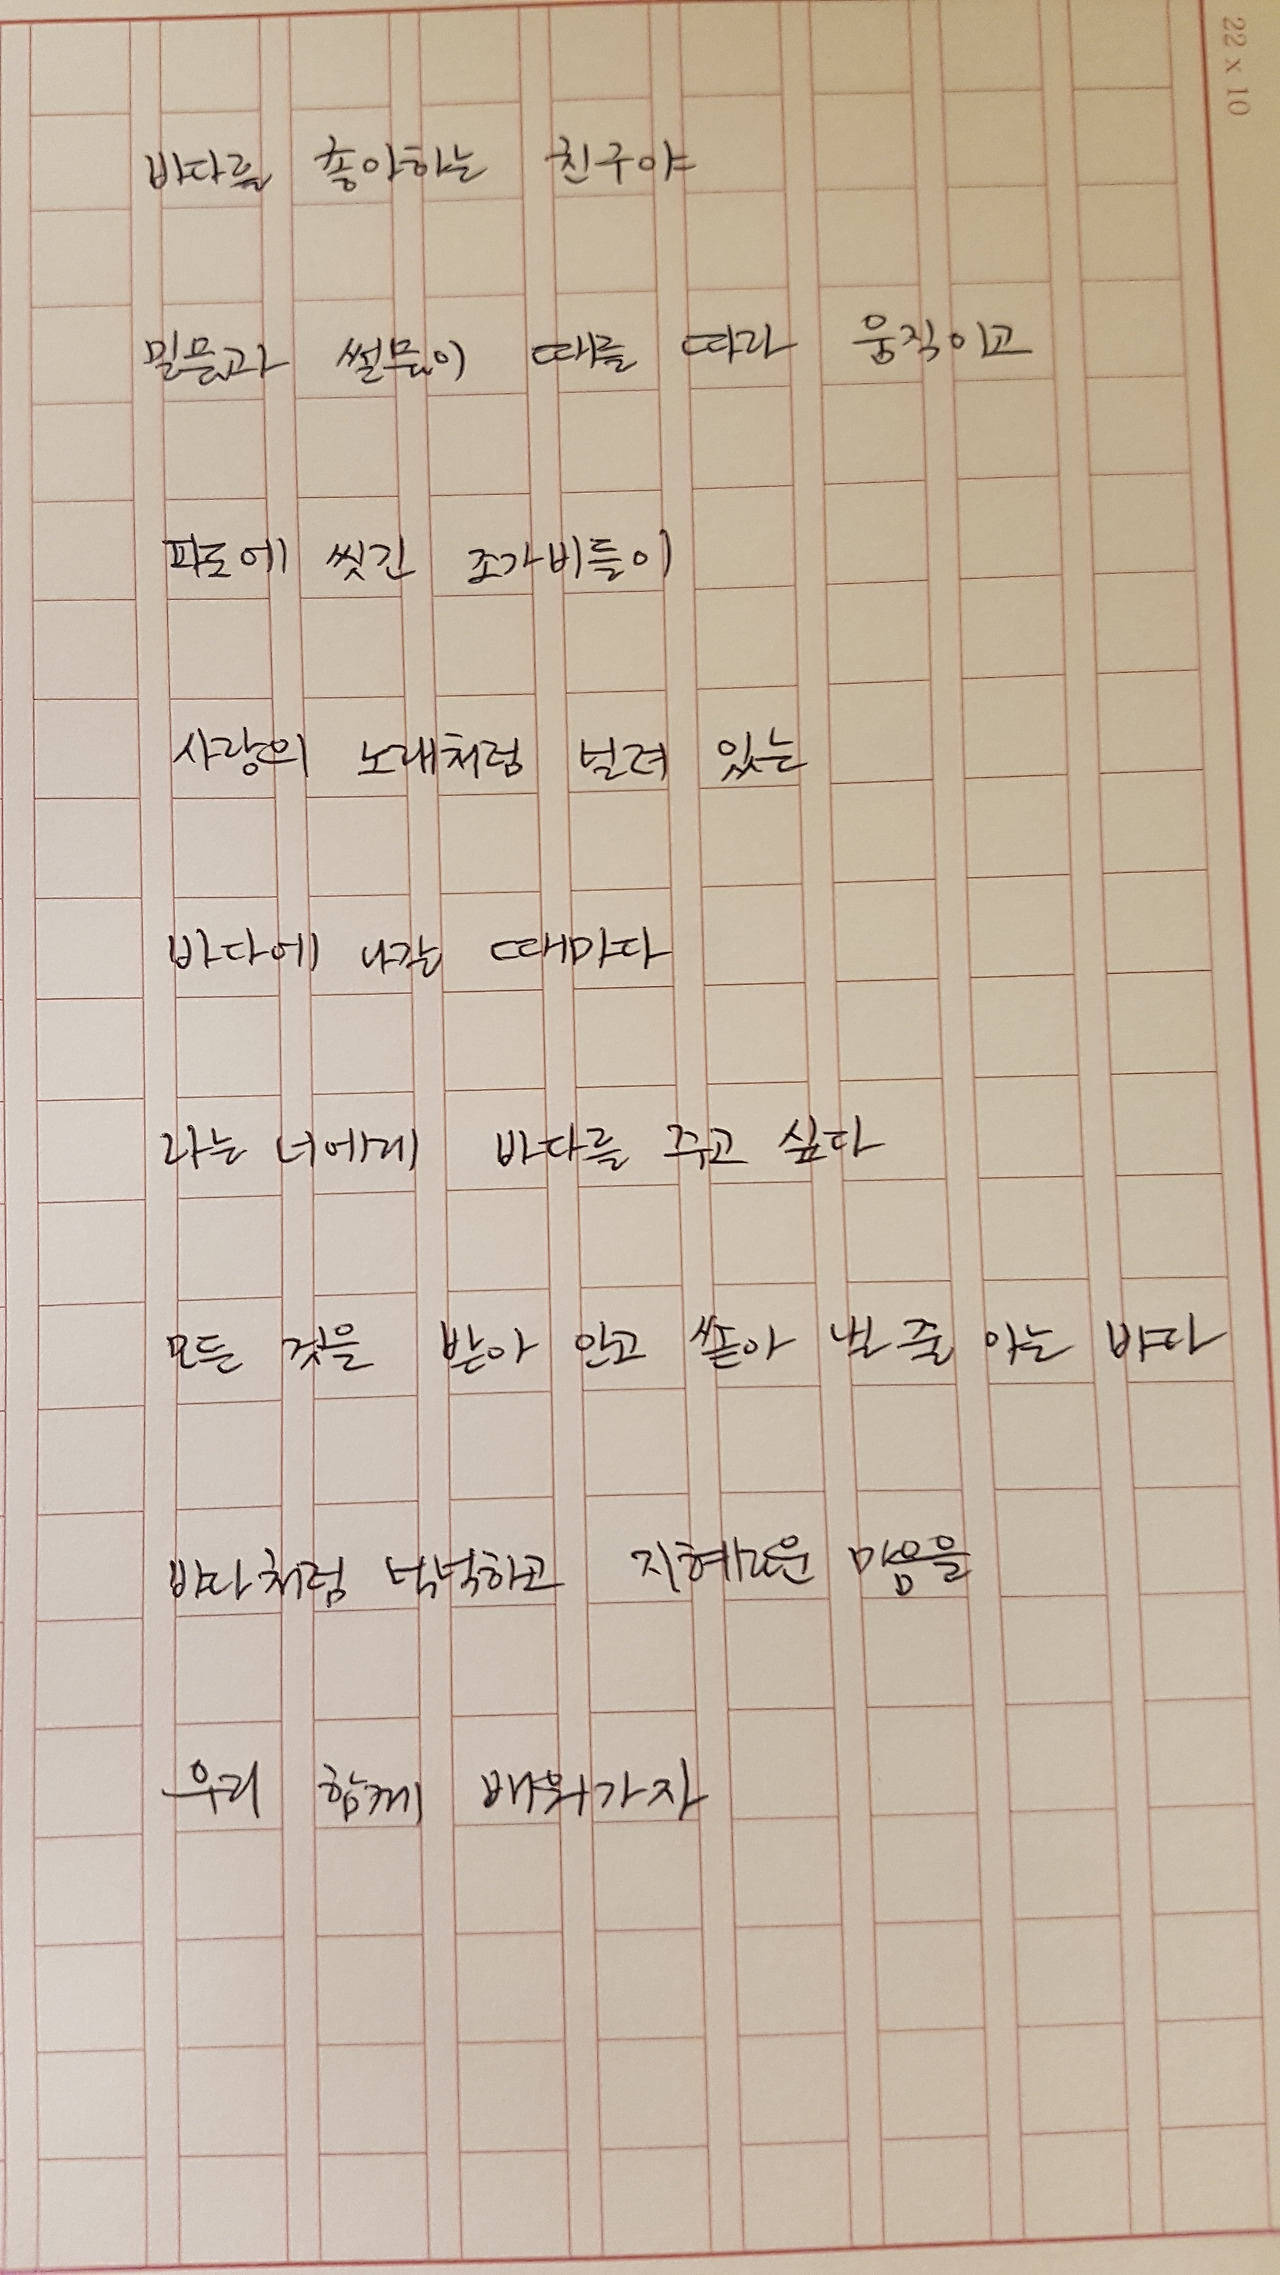 22 x 10
바다를 좋아하는 친구야
밀물과 썰물이 때를 따라 움직이고
파도에 씻긴 조가비들이
사랑의 노래처럼 널려 있는
바다에 나갈 때마다
나는 너에게 바다를 주고 싶다
모든 것을 받아 안고 쏟아 낼 줄 아는 바다
바다처럼 넉넉하고 지혜로운 마음을
우리 함께 배워가자